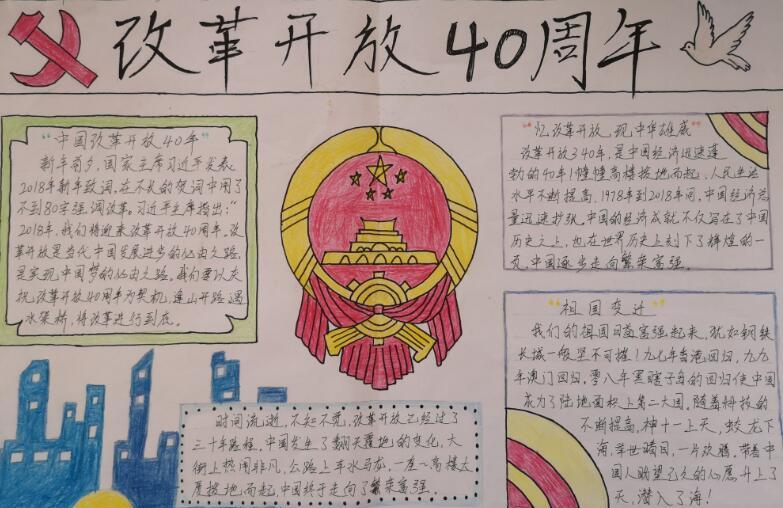 改革开放40周年
“中国改革开放40年”
新年前夕,国家主席习近平发表
2018年新年致词,在不长的贺词中用了
不到80字强调改革。习近平主席指出:“
2018年,我们将迎来改革开放40周年,改
革开放是当代中国发展进步的必由之路,
是实现中国梦的必由之路。我们要以庆
祝改革开放40周年为契机,逢山开路,遇
水架桥,将改革进行到底。
“忆改革开放,现中华雄底”
改革开放340年,是中国经济迅速蓬
勃的40年!幢幢高楼拔地而起、人民生活
水平不断提高、1978年到2018年间,中国经济总
量迅速扩张,中国的经济成就,不仅写在了中国
历史之上,也在世界历史上刻下了辉煌的一
页,中国逐步走向繁荣富强。
“祖国变迁”
我们的祖国日益富强起来,犹如钢铁
长城一般坚不可摧!九七年香港回归,九九
年澳门回归,零八年黑瞎子岛的回归使中国
成为了陆地面积上第二大国,随着科技的
不断提高,神十一上天,蛟龙下
海,举世瞩目,一片欢腾,带着中
国人盼望已久的心愿,升上了
天,潜入了海!
时间流逝,不知不觉,改革开放已经过了
三十年路程,中国发生了翻天覆地的变化,大
街上热闹非凡,公路上车水马龙,一座一高楼大
厦拔地而起,中国终于走向了繁荣富强。